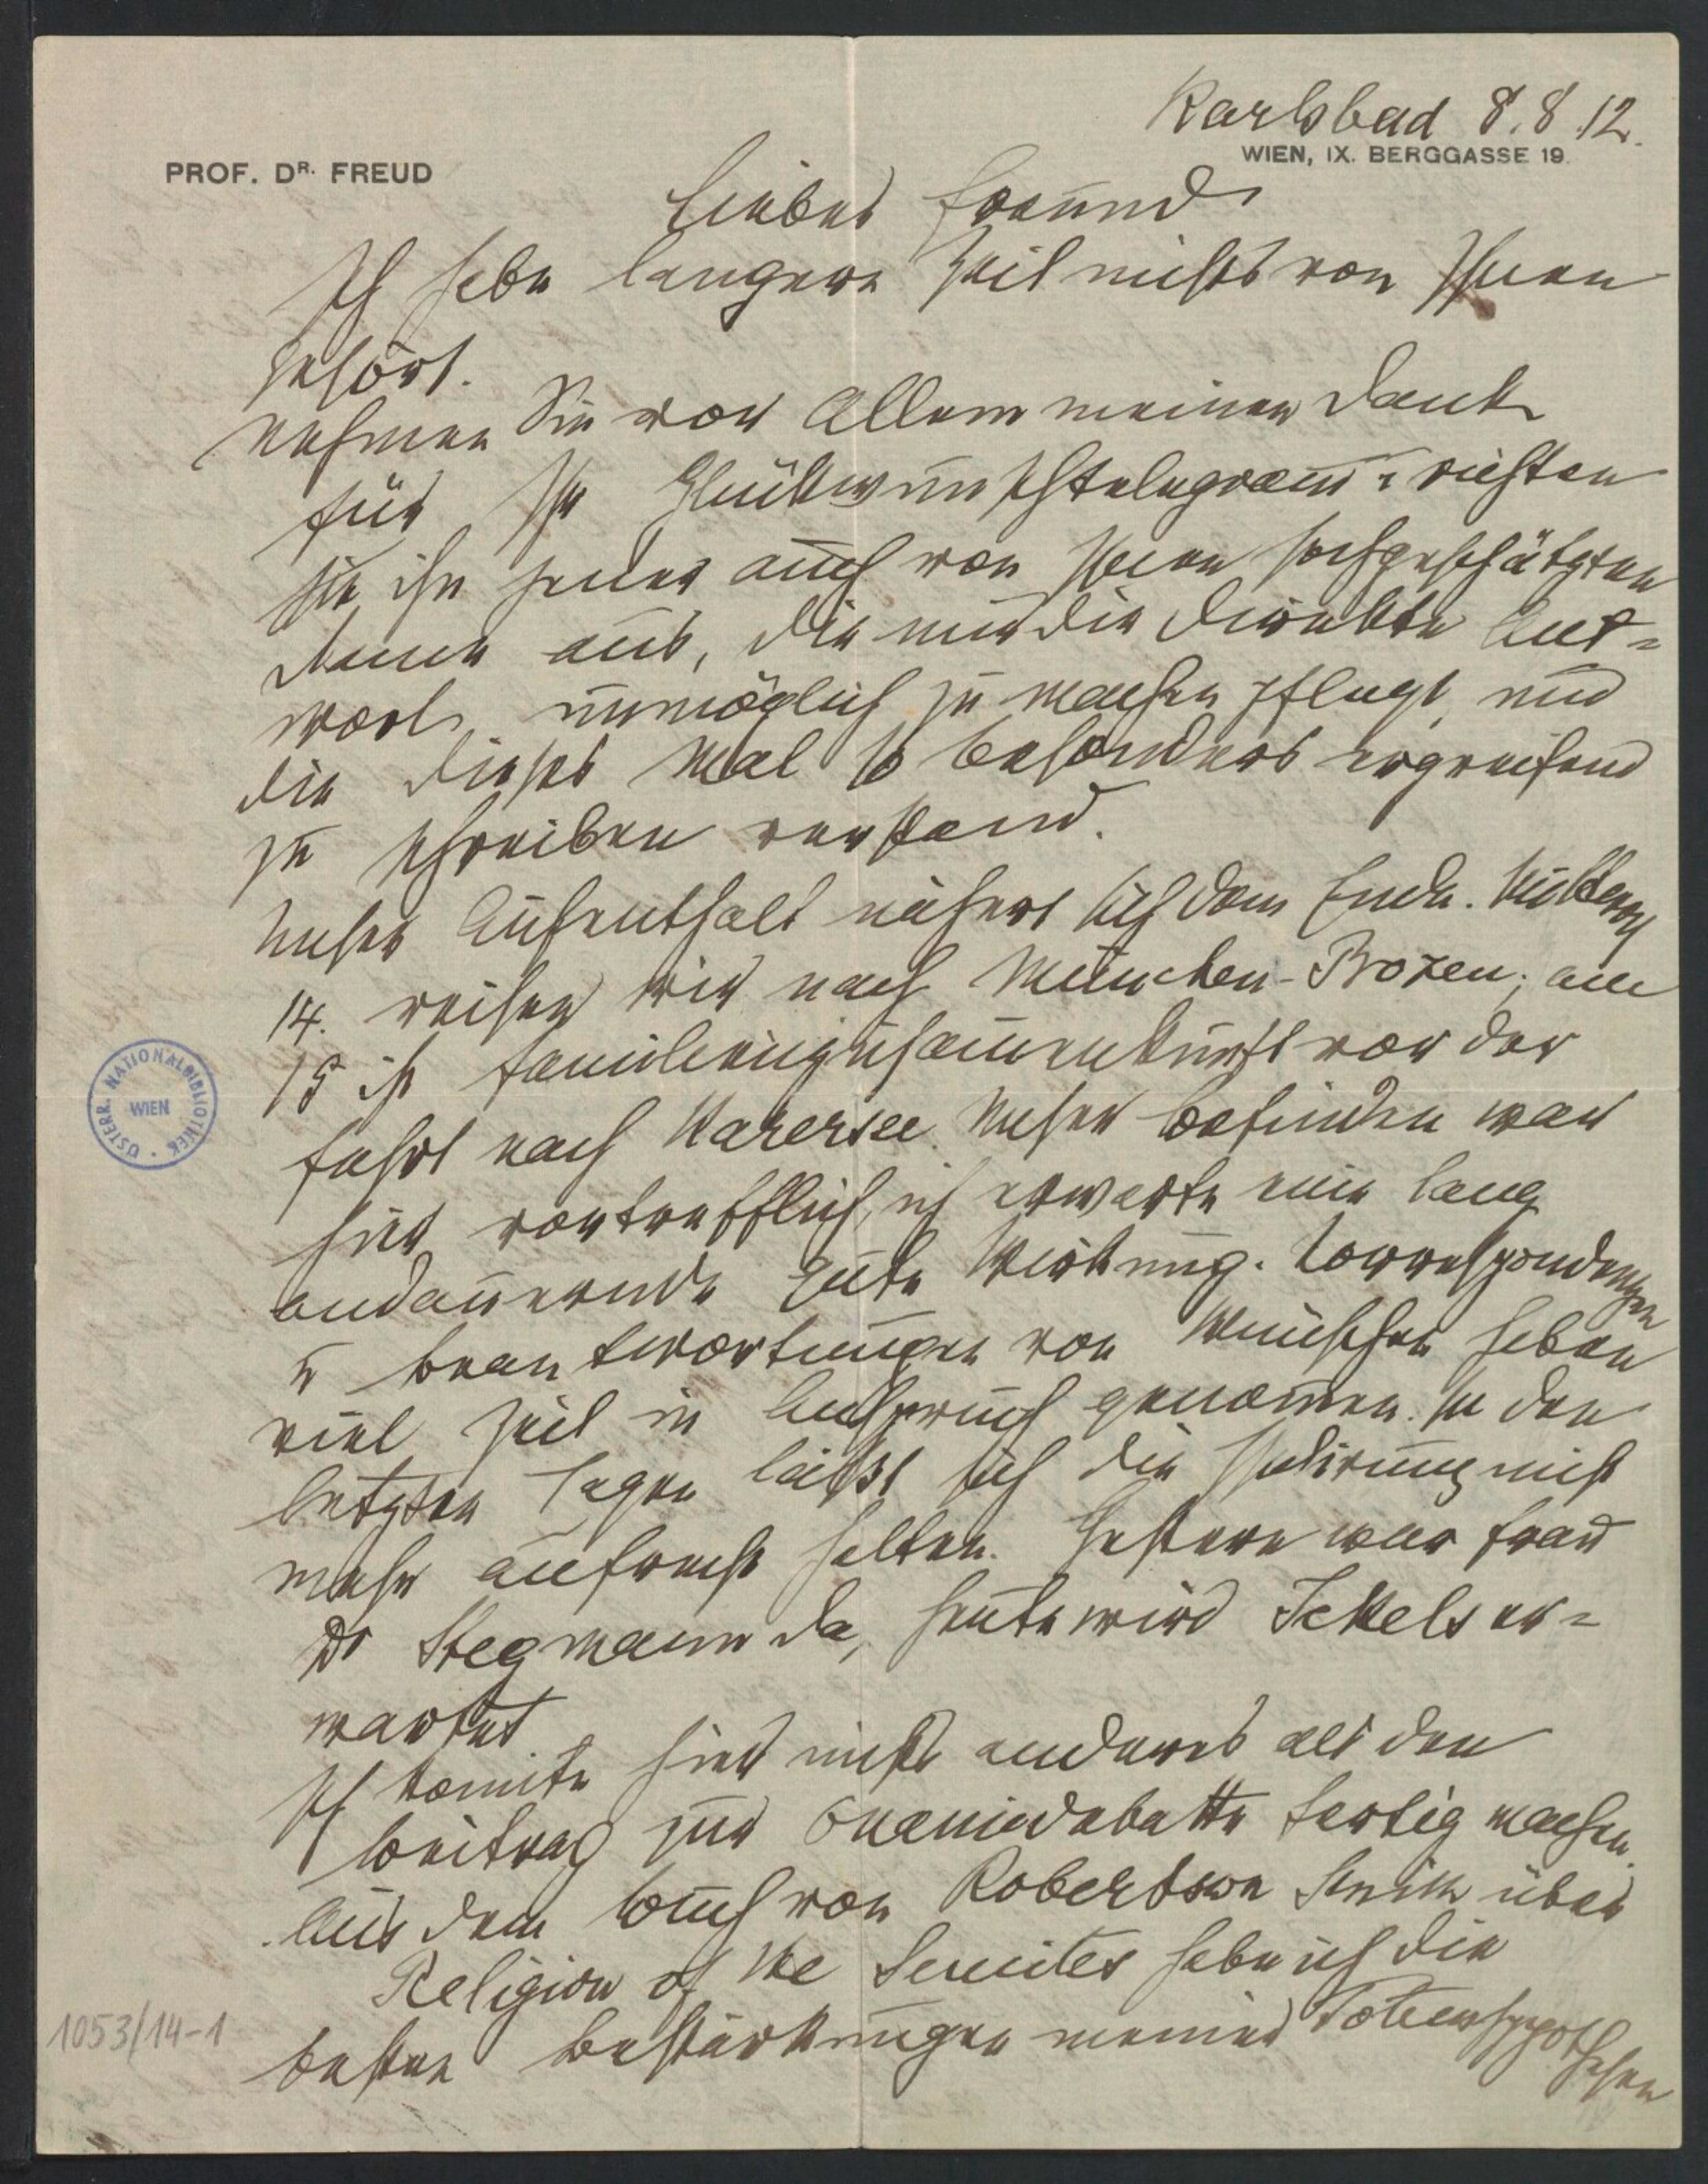 Karlsbad 8.8.12.
PROF. DR. FREUD
WIEN, IX. BERGGASSE 19.
Lieber Freund
Ich habe längere Zeit nichts von Ihnen
gehört.
Nehmen Sie vor Allem meinen Dank
für Ihr Glückwunschtelegramm u richten
Sie ihn ferner auch von Ihrer hochgeschätzten
Dame aus, die mir die direkte Ant-
wort unmöglich zu machen pflegt, und
die dieses Mal so besonders ergreifend
zu schreiben verstand.
Unser Aufenthalt nähert sich dem Ende. Mittwoch
14. reisen wir nach München-Bozen; am
15 ist Familienzusammenkunft vor der
Fahrt nach Karersee. Unser Befinden war
hier vortrefflich, ich erwarte eine lang
andauernde gute Wirkung. Correspondenzen
u Beantwortungen von Wünschen haben
viel Zeit in Anspruch genommen. In den
letzten Tagen läßt sich die Isolirung nicht
mehr aufrecht halten. Gestern war Frau
Dr Stegmann da, heute wird Jekels er-
wartet.
Ich konnte hier nichts anderes als den
Beitrag zur Onaniedebatte fertig machen.
Aus dem Buch von Robertson Smith über
Religion of the Semites habe ich die
besten Bestärkungen meiner Totemhypothesen
ÖSTERR. NATIONALBIBLIOTHEK
WIEN
1053/14-1